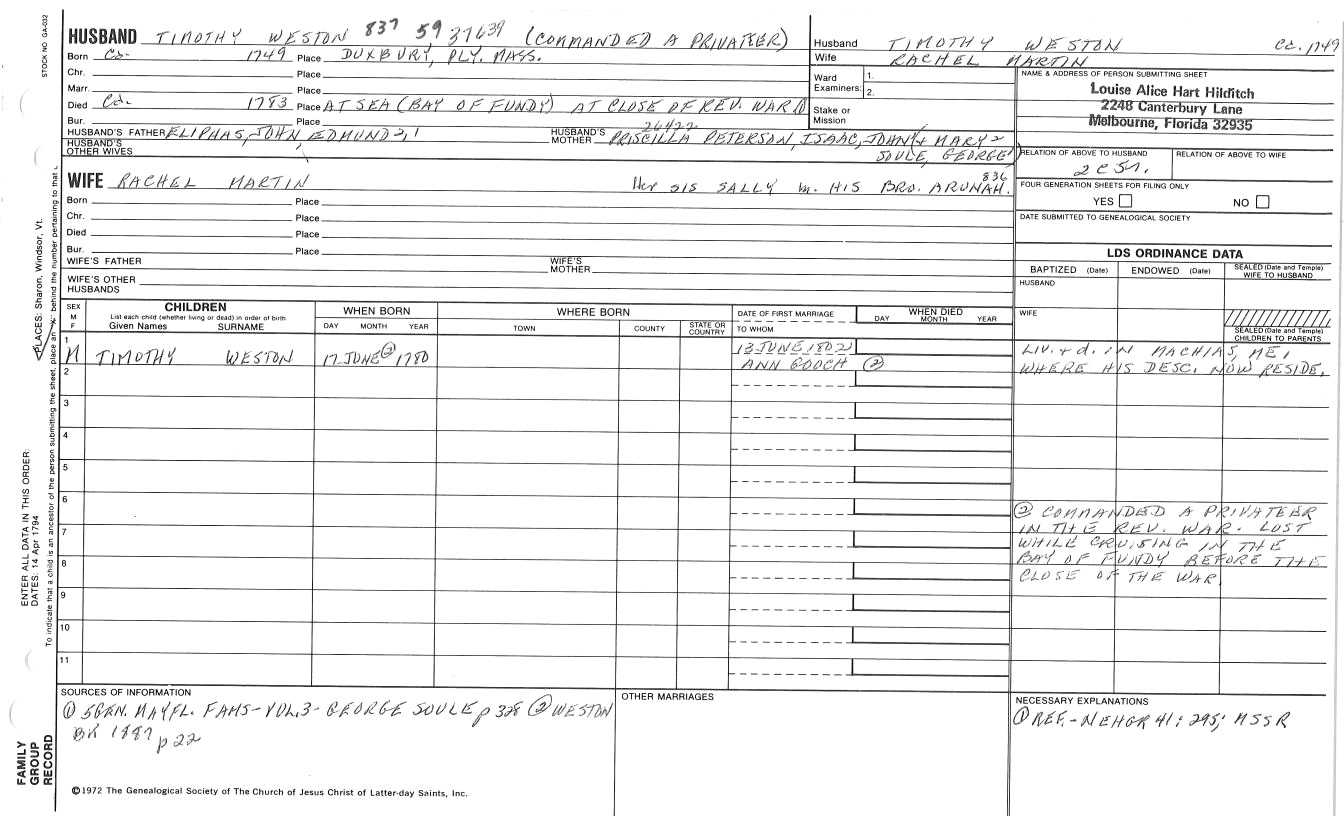 STOCK NO. GA-032
HUSBAND TIMOTHY WESTON 837 59 37639 (COMMANDED A PRIVATEER)
Born Ca. 1749 Place DUXBURY, PLY. MASS.
Chr. Place
Marr. Place
Died Ca. 1783 Place AT SEA (BAY OF FUNDY) AT CLOSE OF REV. WAR ①
Bur. Place
HUSBAND'S FATHER ELIPHAS, JOHN EDMUND 2, 1
HUSBAND'S MOTHER 26422 PRISCILLA PETERSON, ISAAC, JOHN & MARY 2
HUSBAND'S OTHER WIVES
SOULE, GEORGE 1)
Husband TIMOTHY WESTON Ca. 1749
Wife RACHEL MARTIN
Ward Examiners: 1.
2.
Stake or Mission
NAME & ADDRESS OF PERSON SUBMITTING SHEET
Louise Alice Hart Hilditch
2248 Canterbury Lane
Melbourne, Florida 32935
RELATION OF ABOVE TO HUSBAND
2c5r.
RELATION OF ABOVE TO WIFE
FOUR GENERATION SHEETS FOR FILING ONLY
YES NO
DATE SUBMITTED TO GENEALOGICAL SOCIETY
WIFE RACHEL MARTIN Her SIS SALLY m. HIS BRO. ARUNAH. 836
Born Place
Chr. Place
Died Place
Bur. Place
WIFE'S FATHER
WIFE'S MOTHER
WIFE'S OTHER HUSBANDS
LDS ORDINANCE DATA
BAPTIZED (Date) ENDOWED (Date) SEALED (Date and Temple) WIFE TO HUSBAND
HUSBAND
WIFE
SEALED (Date and Temple) CHILDREN TO PARENTS
SEX M F
CHILDREN
List each child (whether living or dead) in order of birth
Given Names SURNAME
WHEN BORN
DAY MONTH YEAR
WHERE BORN
TOWN COUNTY STATE OR COUNTRY
DATE OF FIRST MARRIAGE
TO WHOM
WHEN DIED
DAY MONTH YEAR
1
M TIMOTHY WESTON 17 JUNE ② 1780
13 JUNE 1802
ANN GOOCH ②
LIV. & d. IN MACHIAS, ME,
WHERE HIS DESC. NOW RESIDE.
2
3
4
5
6
7
8
9
10
11
② COMMANDED A PRIVATEER
IN THE REV. WAR. LOST
WHILE CRUISING IN THE
BAY OF FUNDY BEFORE THE
CLOSE OF THE WAR.
SOURCES OF INFORMATION
① 5GEN. MAYFL. FAMS-VOL.3- GEORGE SOULE p 328 ② WESTON
BK 1887 p 22
OTHER MARRIAGES
NECESSARY EXPLANATIONS
① REF.-NEHGR 41: 295; MSSR
©1972 The Genealogical Society of The Church of Jesus Christ of Latter-day Saints, Inc.
FAMILY GROUP RECORD
ENTER ALL DATA IN THIS ORDER:
DATES: 14 Apr 1794
PLACES: Sharon, Windsor, Vt.
To indicate that a child is an ancestor of the person submitting the sheet, place an "X" behind the number pertaining to that